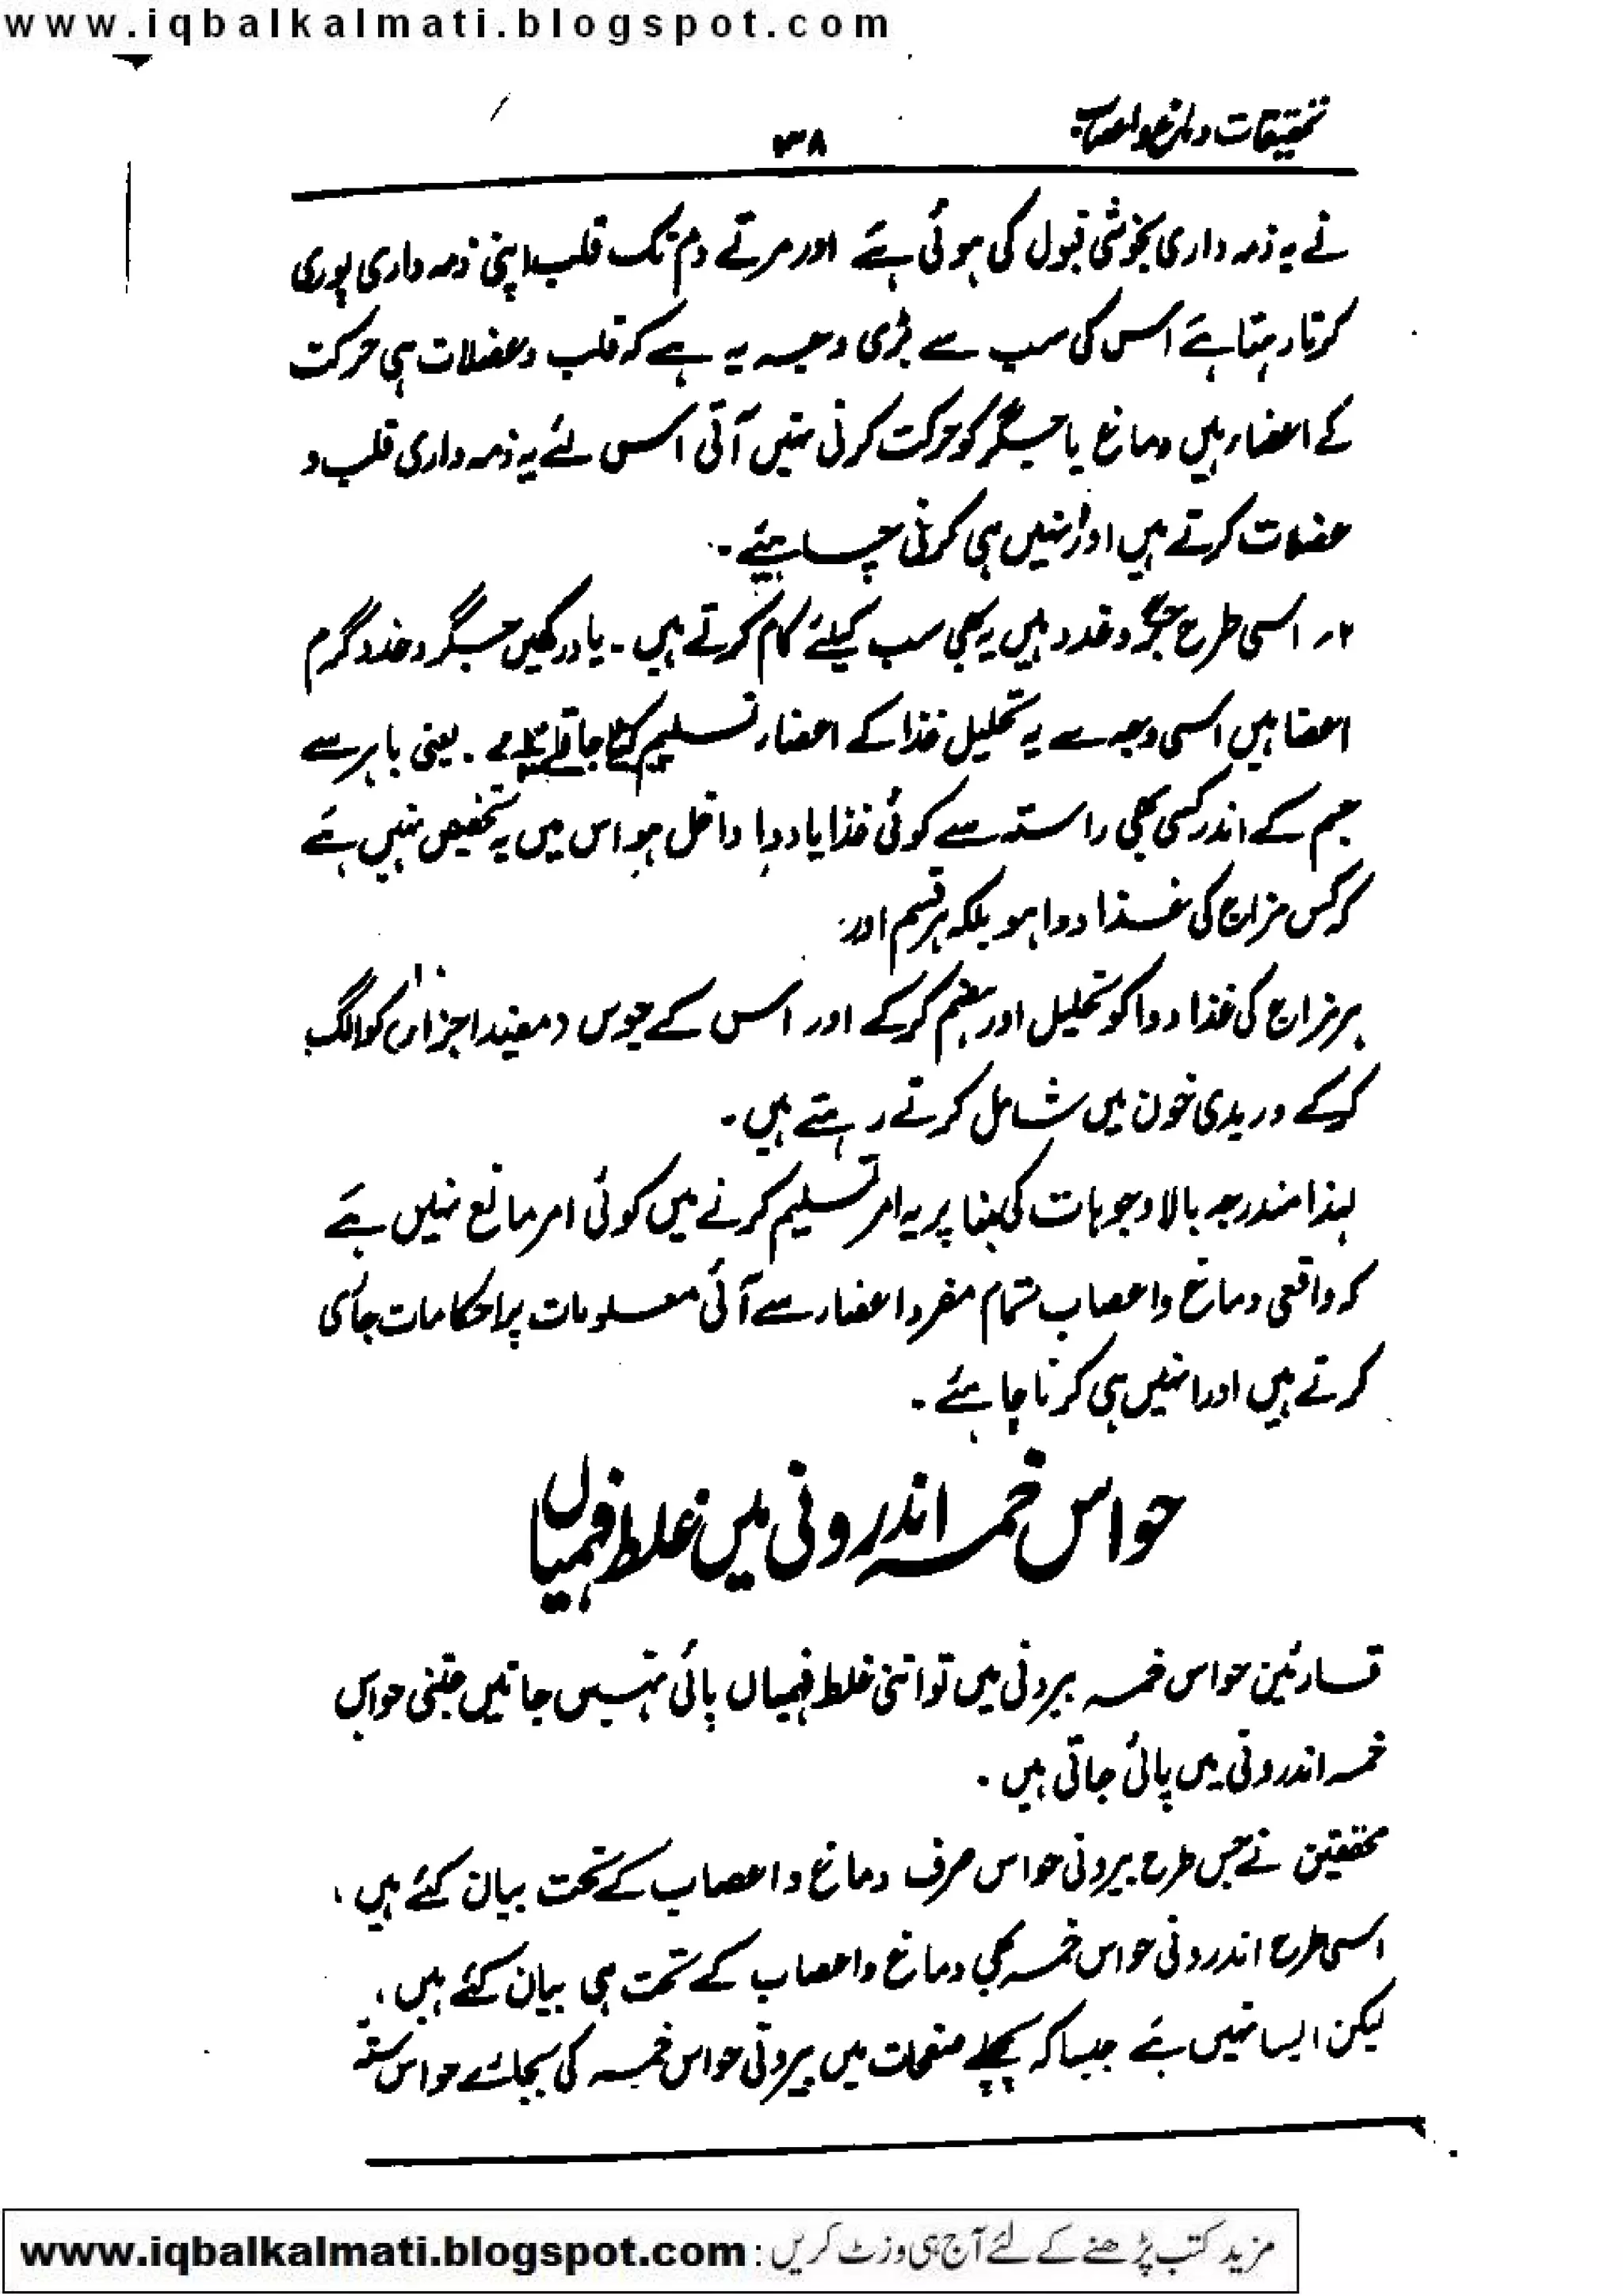 www.iqbalkalmati.blogspot.com
تحقیقات دماغ و اعصاب
۳۸
نے یہ ذمہ داری بخوشی قبول کی ہوئی ہے اور مرتے دم تک قلب اپنی ذمہ داری پوری
کرتا رہتا ہے اس کی سب سے بڑی وجہ یہ ہے کہ قلب و عضلات ہی حرکت
کے اعضاء ہیں دماغ یا جگر کو حرکت کرنی نہیں آتی اس لئے یہ ذمہ داری قلب و
عضلات کرتے ہیں اور انہیں ہی کرنی چاہیئے۔
۲۔ اسی طرح جگر و غدد ہیں یہ بھی سب کیلئے کام کرتے ہیں۔ یاد رکھیں جگر و غدد گرم
اعضا ہیں اسی وجہ سے یہ تحلیل غذا کے اعضاء تسلیم کئے جاتے ۔ یعنی باہر سے
جسم کے اندر کسی بھی راستہ سے کوئی غذا یا دوا داخل ہو اس میں یہ تخصیص نہیں ہے
کہ کس مزاج کی غذا دوا ہو بلکہ ہر قسم اور
ہر مزاج کی غذا و دوا کو تحلیل اور ہضم کر کے اور اس کے جوس و مفید اجزاء کو الگ
کر کے وریدی خون میں شامل کرتے رہتے ہیں۔
لہذا مندرجہ بالا وجوہات کی بنا پر یہ امر تسلیم کرنے میں کوئی امر مانع نہیں ہے
کہ واقعی دماغ و اعصاب تمام مفرد اعضاء سے آئی معلومات پر احکامات جاری
کرتے ہیں اور انہیں ہی کرنا چاہئے۔
حواس خمسہ اندرونی میں غلط فہمیاں
قارئین حواس خمسہ بیرونی میں تو اتنی غلط فہمیاں پائی نہیں جاتیں جتنی حواس
خمسہ اندرونی میں پائی جاتی ہیں۔
محققین نے جس طرح بیرونی حواس صرف دماغ و اعصاب کے تحت بیان کئے ہیں،
اسی طرح اندرونی حواس خمسہ بھی دماغ و اعصاب کے تحت ہی بیان کئے ہیں،
لیکن ایسا نہیں ہے جیسا کہ پچھلے صفحات میں بیرونی حواس خمسہ کی بجائے حواس ستہ
مزید کتب پڑھنے کے لئے آج ہی وزٹ کریں : www.iqbalkalmati.blogspot.com